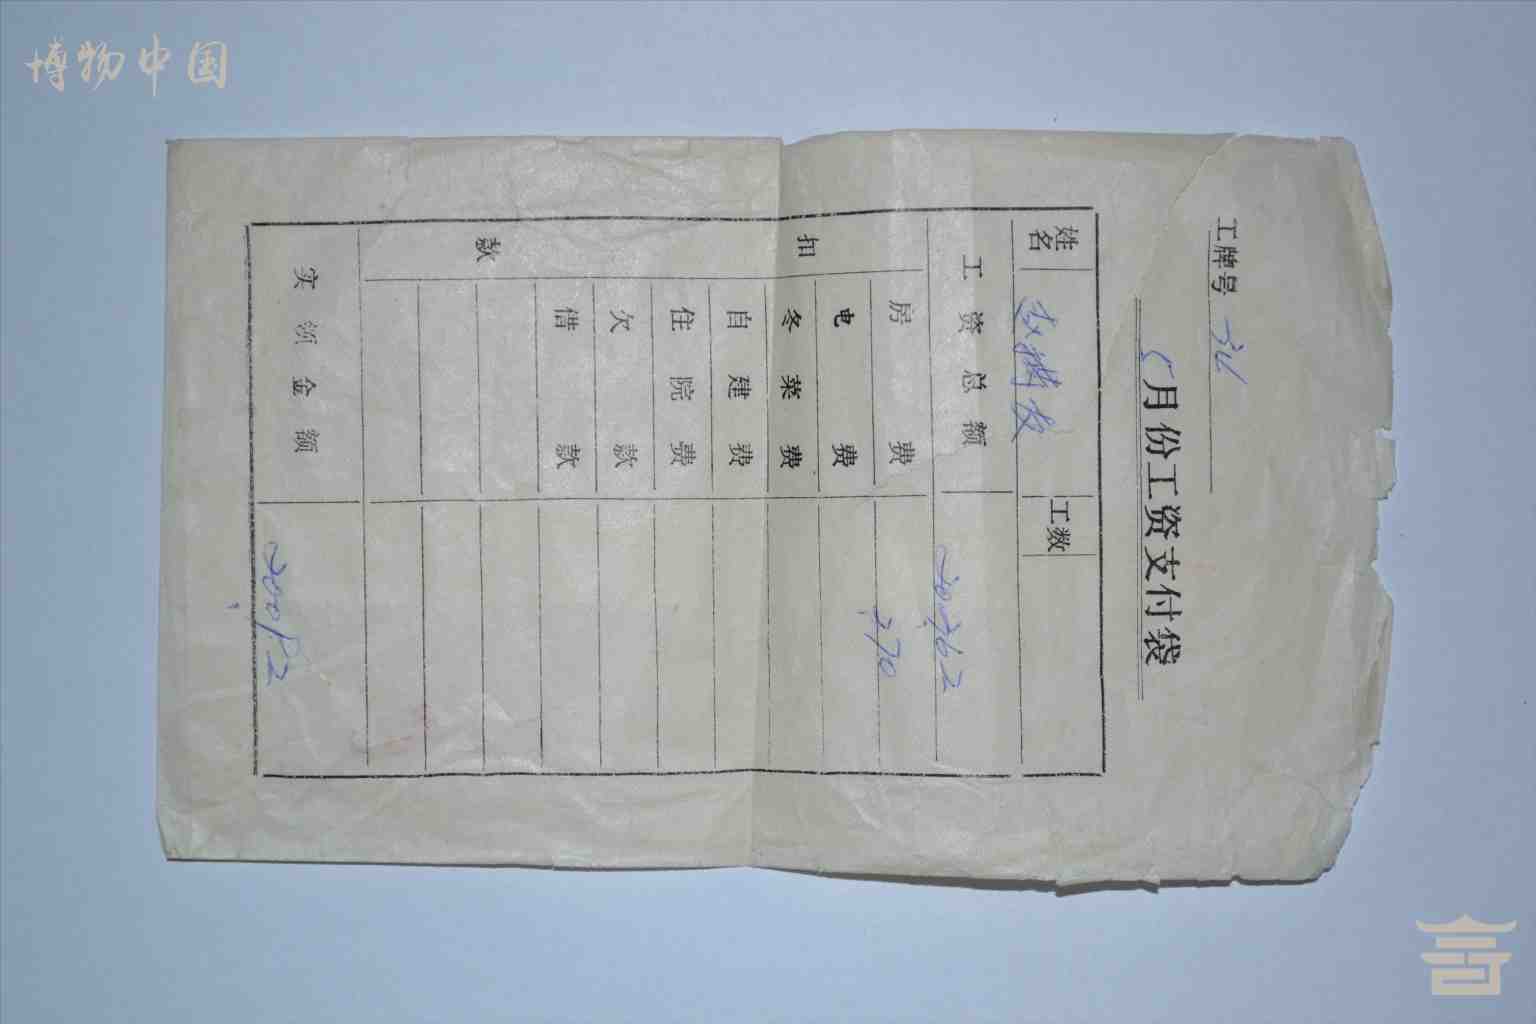 博物中国
工牌号
5月份工资支付袋
姓名 工数
工资总额
扣款
房费
电费 270
冬菜费
自建费
住院费
欠款
借款
实领金额